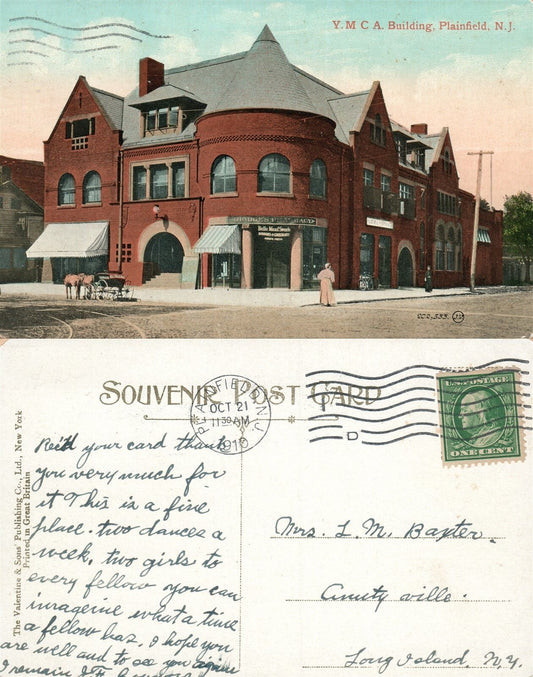 Y. M. C. A. Building, Plainfield, N. J.
202,555. JV
SOUVENIR POST CARD
PLAINFIELD, N.J.
OCT 21
11 30 AM
1910
D
U.S. POSTAGE
ONE CENT
The Valentine & Sons' Publishing Co., Ltd., New York
Printed in Great Britain
Rec'd your card thank
you very much for
it This is a fine
place. two dances a
week. two girls to
every fellow you can
imagine what a time
a fellow has. I hope you
are well and to see you again
I remain
Mrs. L. M. Baxter.
Amity ville.
Long Island, N.Y.